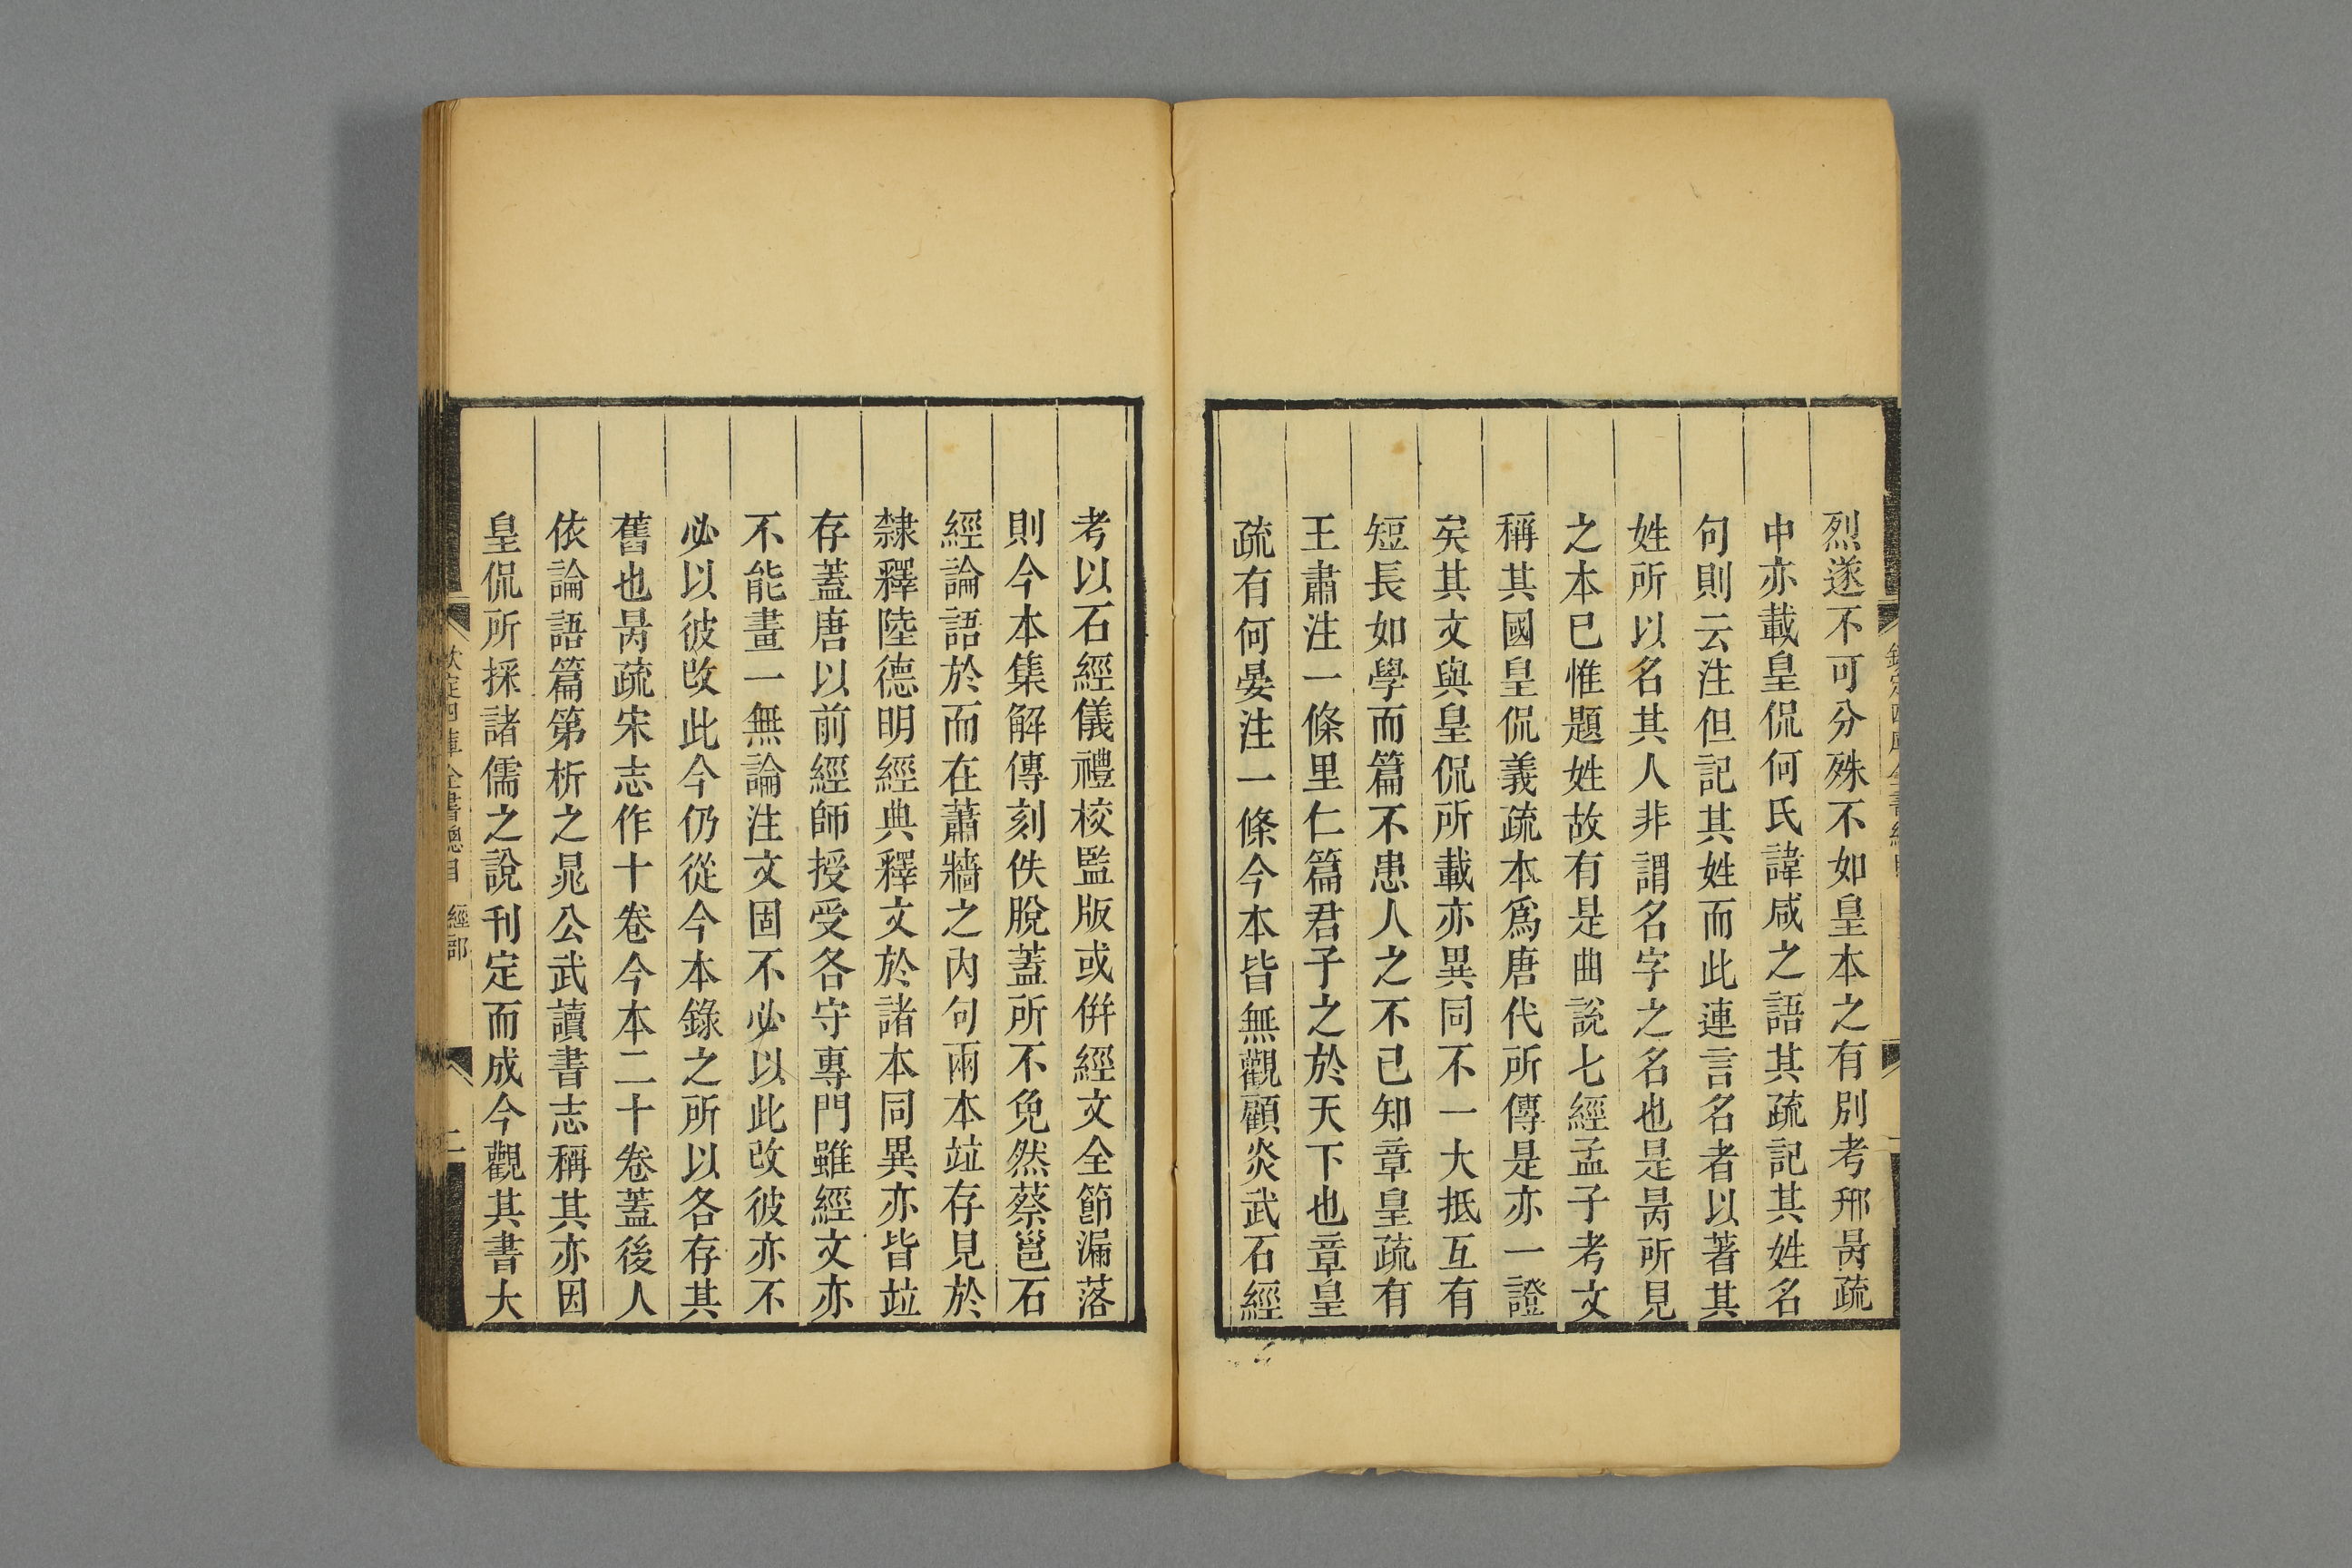 烈遂不可分殊不如皇本之有別考邢昺疏
中亦載皇侃何氏諱咸之語其疏記其姓名
句則云注但記其姓而此連言名者以著其
姓所以名其人非謂名字之名也是昺所見
之本已惟題姓故有是曲說七經孟子考文
稱其國皇侃義疏本爲唐代所傳是亦一證
矣其文與皇侃所載亦異同不一大抵互有
短長如學而篇不患人之不已知章皇疏有
王肅注一條里仁篇君子之於天下也章皇
疏有何晏注一條今本皆無觀顧炎武石經
考以石經儀禮校監版或倂經文全節漏落
則今本集解傳刻佚脫蓋所不免然蔡邕石
經論語於而在蕭牆之內句兩本竝存見於
隸釋陸德明經典釋文於諸本同異亦皆竝
存蓋唐以前經師授受各守專門雖經文亦
不能畫一無論注文固不必以此改彼亦不
必以彼改此今仍從今本錄之所以各存其
舊也昺疏宋志作十卷今本二十卷蓋後人
依論語篇第析之晁公武讀書志稱其亦因
皇侃所採諸儒之說刊定而成今觀其書大
欽定四庫全書總目 經部 二